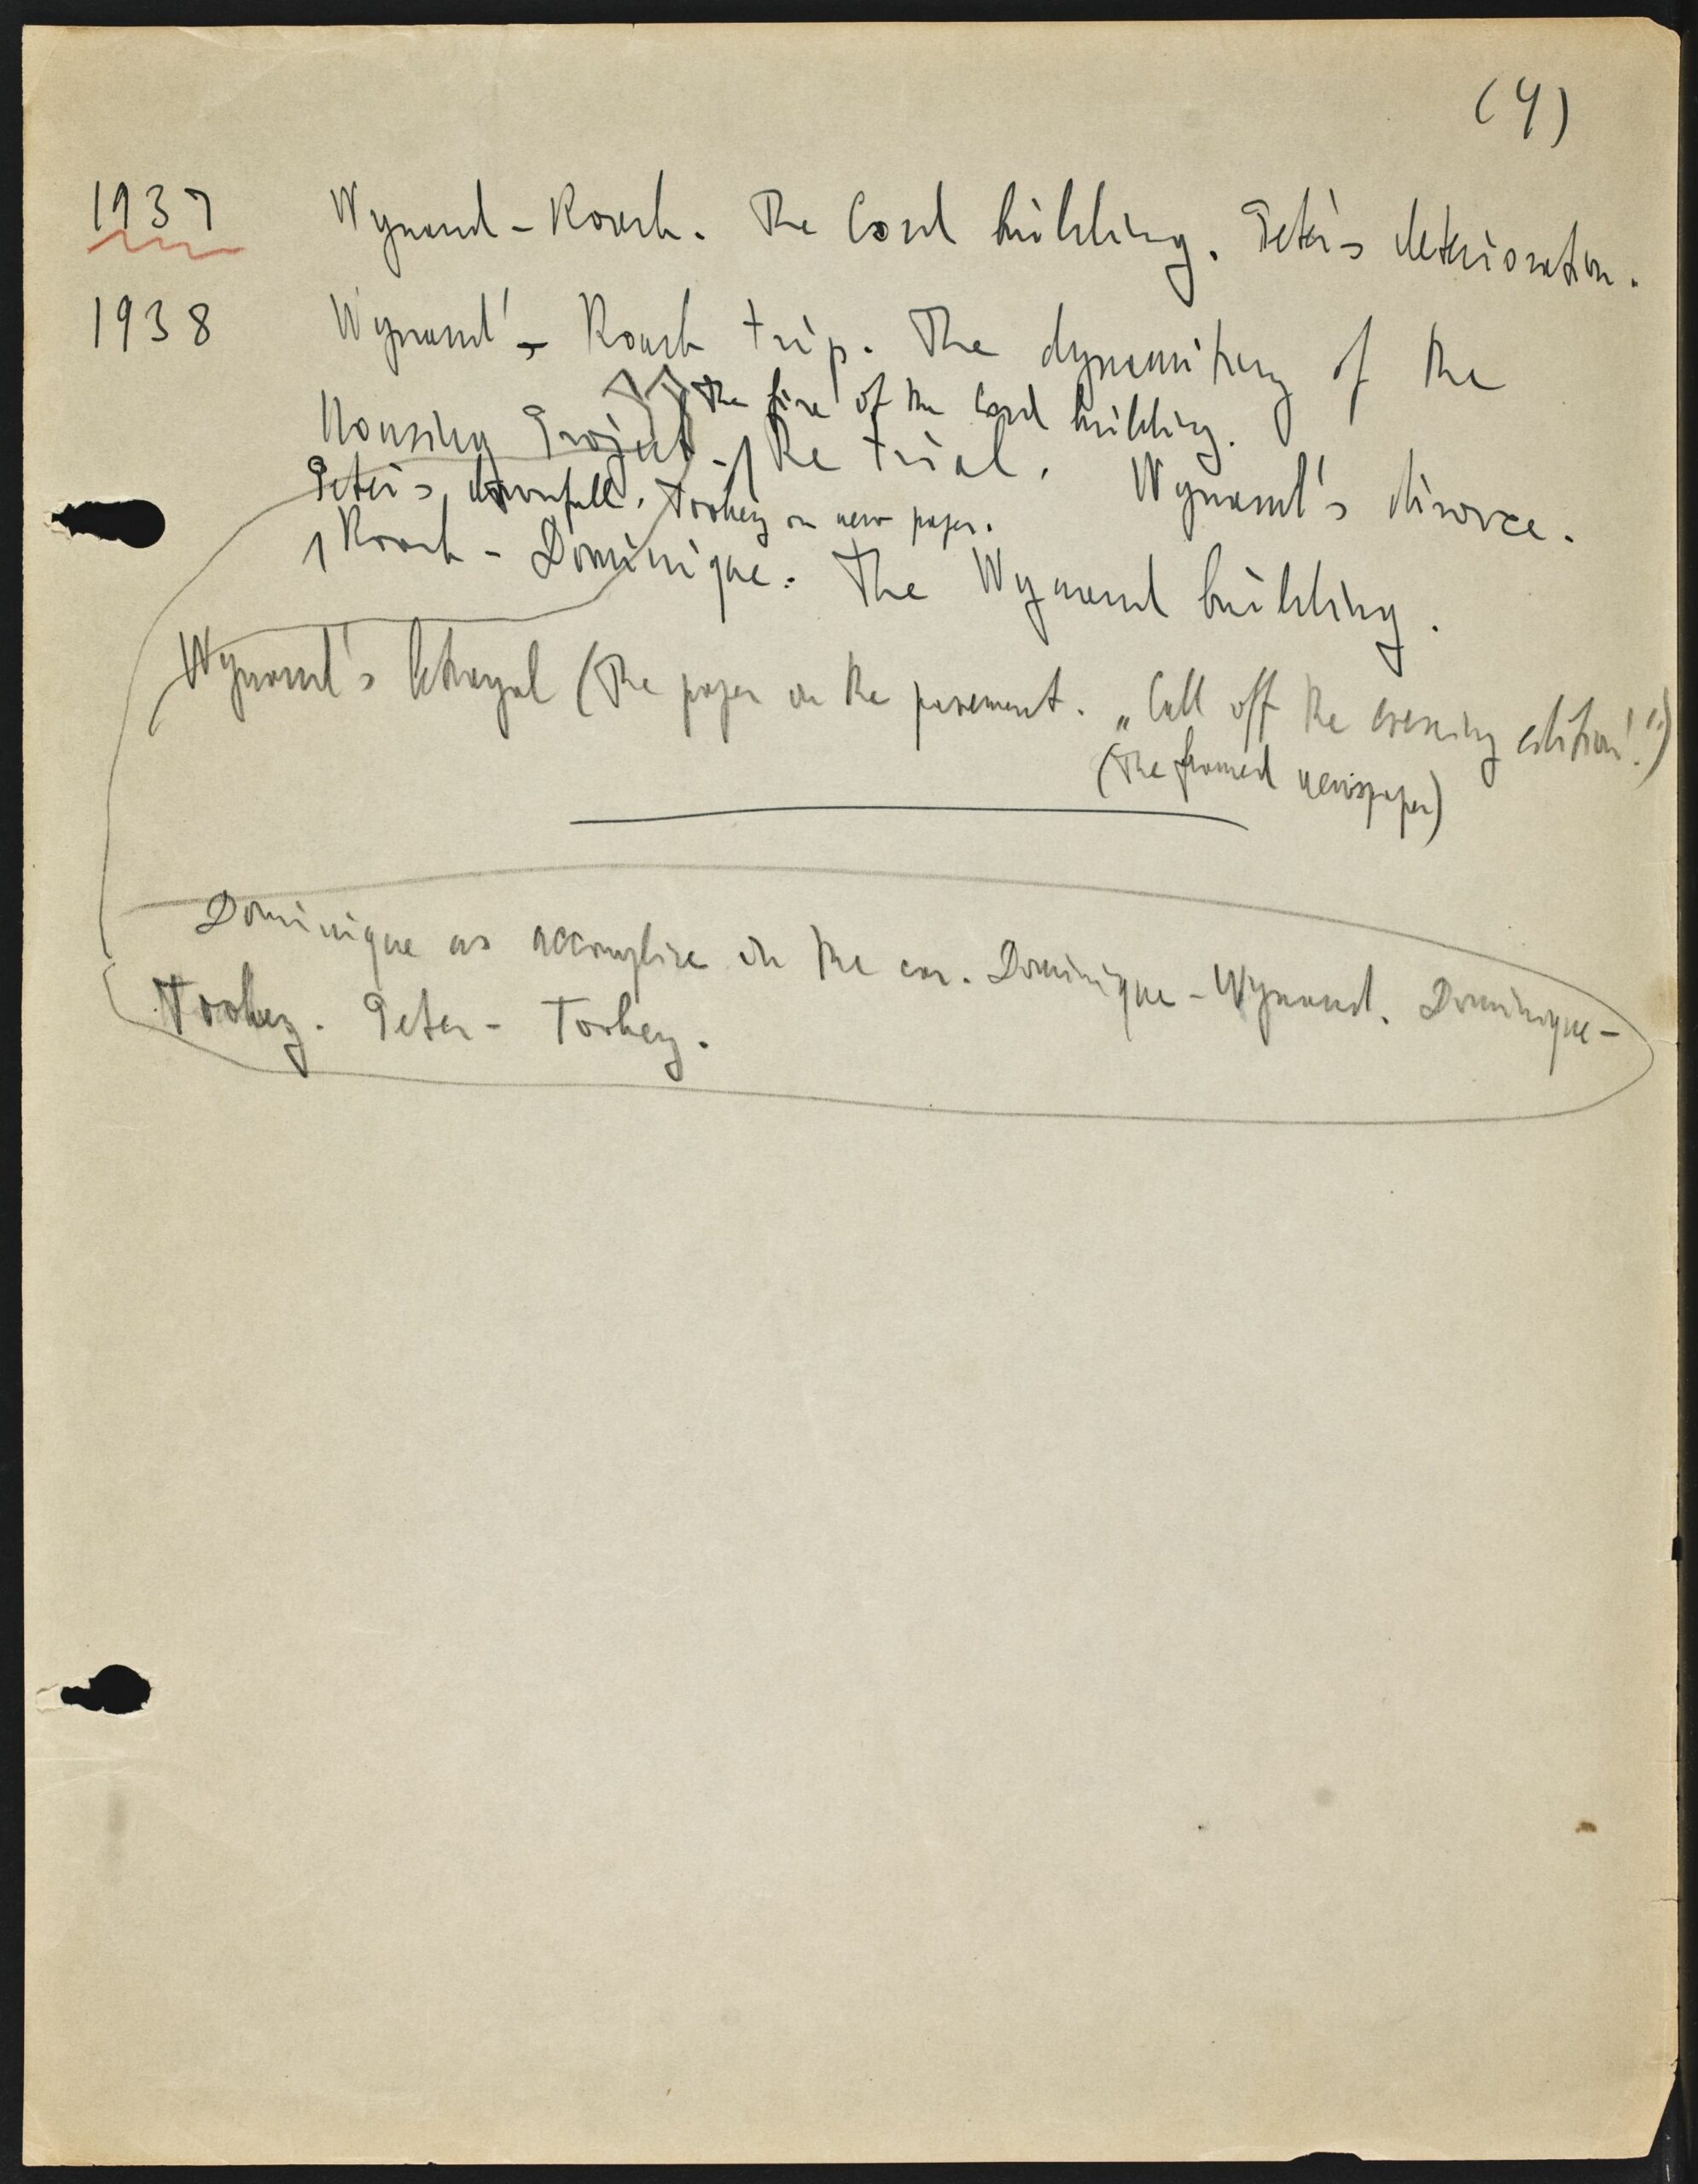 (4)
1937 Wynand - Roark. The Cord building. Peter's deterioration.
1938 Wynand's - Roark trip. The dynamiting of the
The fire of the Cord building.
Housing Project. The trial. Wynand's divorce.
Peter's downfall. Toohey on new paper.
Roark - Dominique. The Wynand building.
Wynand's betrayal (The paper on the pavement. „Call off the evening edition!")
(The framed newspaper)
Dominique as accomplice in the car. Dominique - Wynand. Dominique -
Toohey. Peter - Toohey.